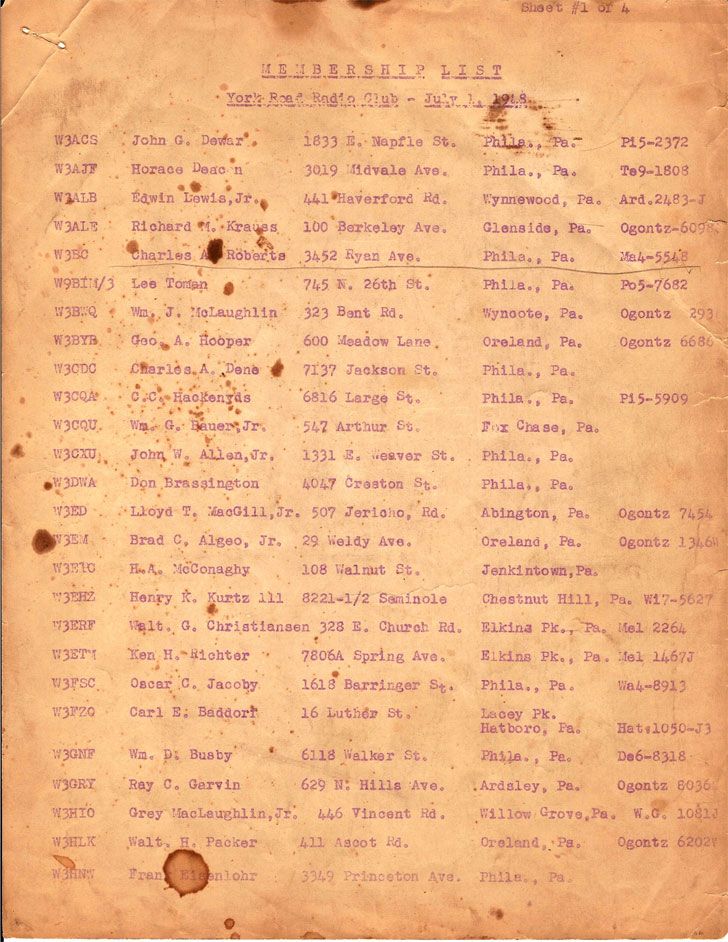 Sheet #1 of 4
MEMBERSHIP LIST
York Road Radio Club - July 1, 1948
W3ACS John G. Dewar 1833 E. Napfle St. Phila., Pa. Pi5-2372
W3AJF Horace Deacon 3019 Midvale Ave. Phila., Pa. Te9-1808
W3ALB Edwin Lewis,Jr. 441 Haverford Rd. Wynnewood, Pa. Ard.2483-J
W3ALE Richard M. Krauss 100 Berkeley Ave. Glenside, Pa. Ogontz-6098
W3BC Charles A. Roberts 3452 Ryan Ave. Phila., Pa. Ma4-5548
W9BIM/3 Lee Toman 745 N. 26th St. Phila., Pa. Po5-7682
W3BWQ Wm. J. McLaughlin 323 Bent Rd. Wyncote, Pa. Ogontz 293
W3BYB Geo. A. Hooper 600 Meadow Lane. Oreland, Pa. Ogontz 6686
W3CDC Charles A. Dene 7137 Jackson St. Phila., Pa.
W3CQA C.C. Hackenyds 6816 Large St. Phila., Pa. Pi5-5909
W3CQU Wm. G. Bauer,Jr. 547 Arthur St. Fox Chase, Pa.
W3CXU John W. Allen,Jr. 1331 E. Weaver St. Phila., Pa.
W3DWA Don Brassington 4047 Creston St. Phila., Pa.
W3ED Lloyd T. MacGill,Jr. 507 Jericho, Rd. Abington, Pa. Ogontz 7454
W3EM Brad C, Algeo, Jr. 29 Weldy Ave. Oreland, Pa. Ogontz 1346W
H.A. McConaghy 108 Walnut St. Jenkintown,Pa.
W3EHZ Henry K. Kurtz 111 8221-1/2 Seminole Chestnut Hill, Pa. Wi7-5627
W3ERF Walt. G. Christiansen 328 E. Church Rd. Elkins Pk., Pa. Mel 2264
W3ETM Ken H. Richter 7806A Spring Ave. Elkins Pk., Pa. Mel 1467J
W3FSC Oscar C. Jacoby 1618 Barringer St. Phila., Pa. Wa4-8913
W3FZQ Carl E. Baddorf 16 Luther St. Lacey Pk.
Hatboro, Pa. Hat.1050-J3
W3GNF Wm. D. Busby 6118 Walker St. Phila., Pa. De6-8318
W3GRY Ray C. Garvin 629 N. Hills Ave. Ardsley, Pa. Ogontz 8036
W3HIO Grey MacLaughlin,Jr. 446 Vincent Rd. Willow Grove,Pa. W.G. 1081J
W3HLK Walt. H. Packer 411 Ascot Rd. Oreland, Pa. Ogontz 6202
W3HNW Frank Eisenlohr 3349 Princeton Ave. Phila., Pa.